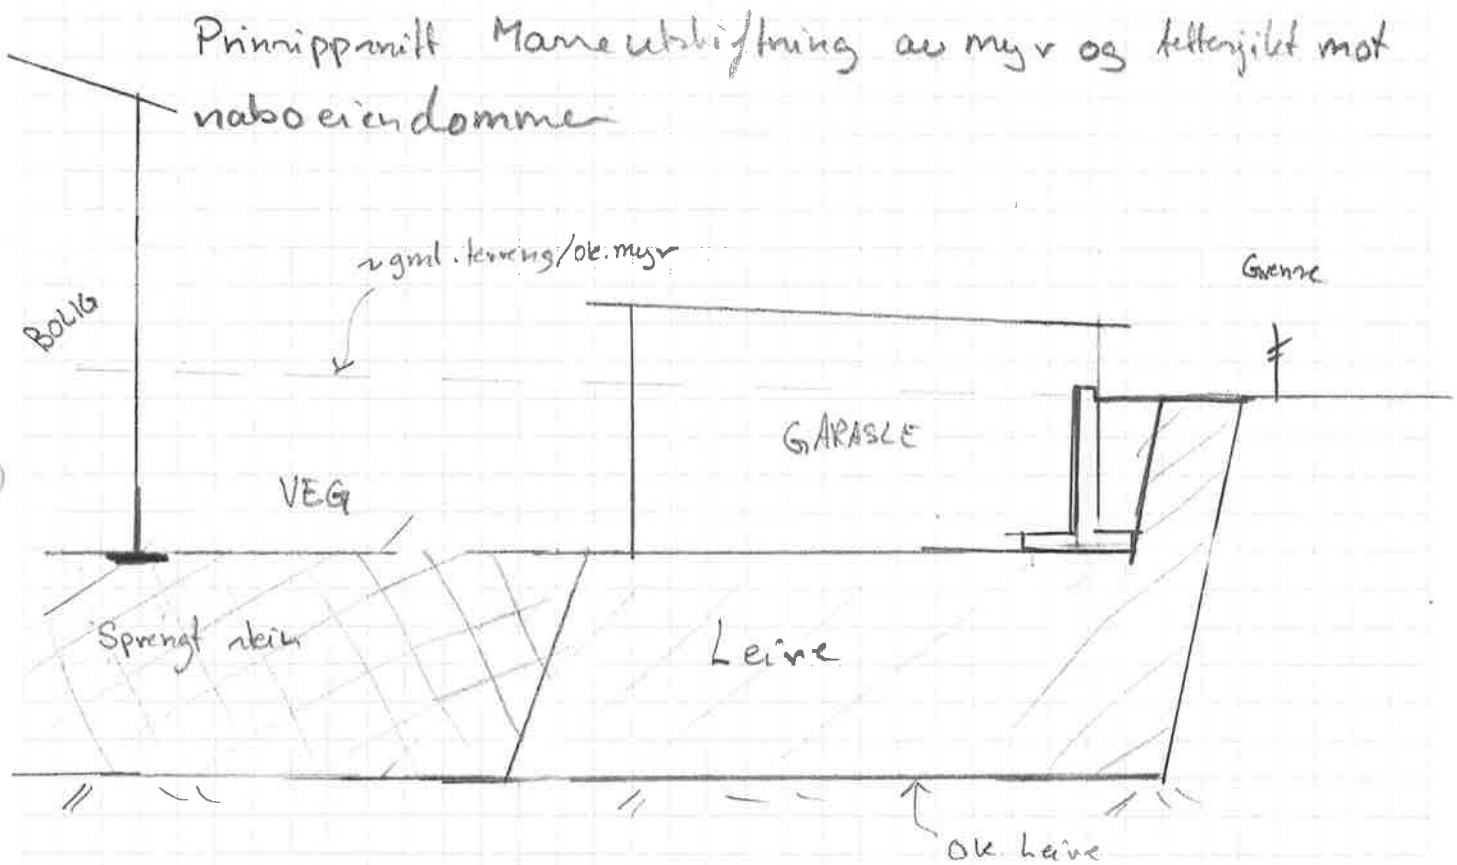 Prinsippsnitt Masseutskiftning av myr og tettesjikt mot
naboeiendommer
~ gml. terreng/ok. myr
Grense
BOLIG
GARASJE
VEG
Sprengt stein
Leire
OK. Leire